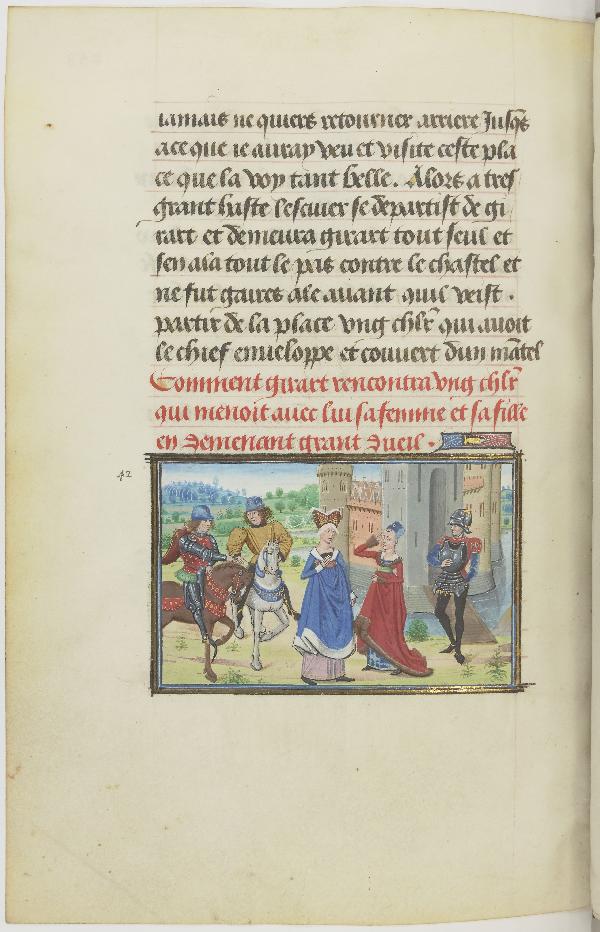 iamais ne quiers retourner arriere Jusqs
ace que ie auray veu et visite ceste pla
ce que la voy tant belle. Alors a tres
grant haste lescuier se departist de gi
rart et demeura girart tout seul et
sen ala tout le pas contre le chastel et
ne fut gaires ale auant quil veist.
partir de la place vng chlr qui auoit
le chief enueloppe et couuert dun mãtel
Comment girart rencontra vng chlr
qui menoit auec lui sa femme et sa fille
en demenant grant dueil.
42